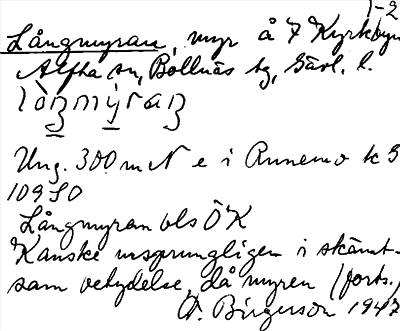 1-2
Långmyran, myr å 7 Kyrkbyn
Alfta sn, Bollnäs tg, Gävl. l.
Ung. 300 m N e i Runemo k 3
109 SO
Långmyran ols ÖK
Kanske ursprungligen i skämt-
sam betydelse, då myren (forts.)
Birgerson 1947